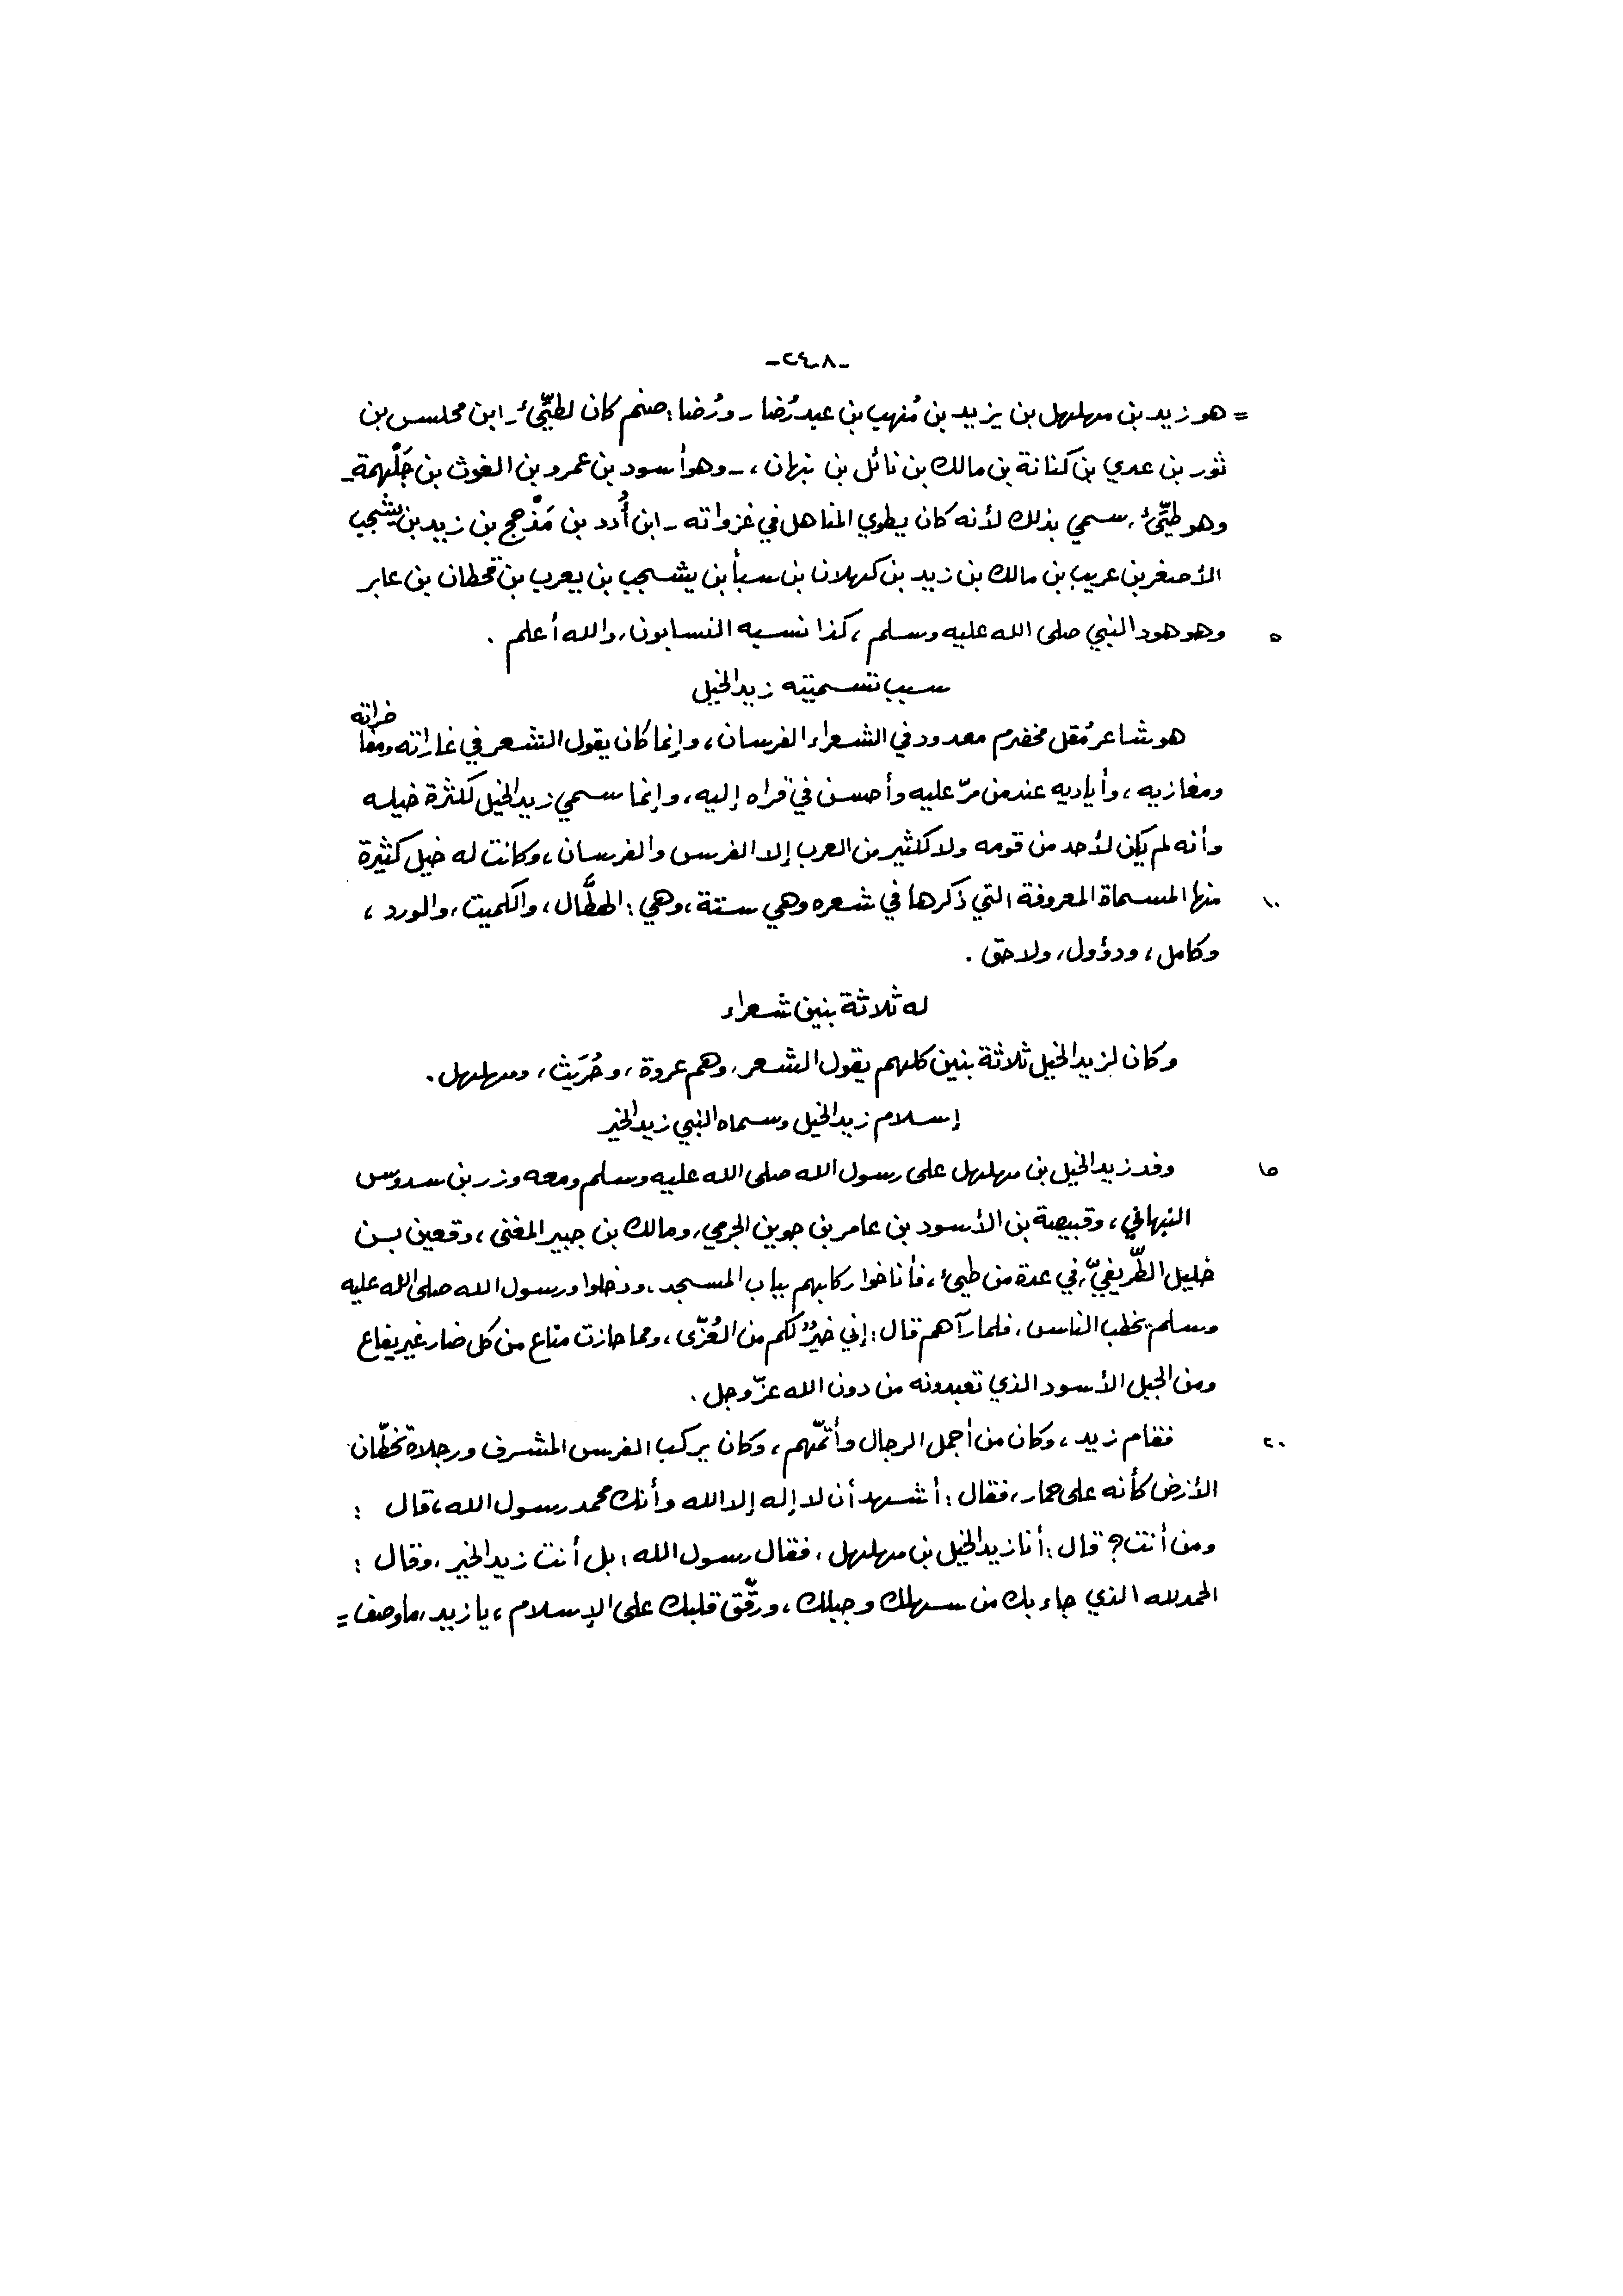 -٢٤٠٨-
= هو زيد بن مهلهل بن يزيد بن مُنهب بن عبد رُضا - ورُضا: صنم كان لطيّئ - ابن محلس بن
ثور بن عدي بن كنانة بن مالك بن نائل بن نبهان، - وهو أسود بن عمرو بن الغوث بن جَلْهمة -
وهو طيّئ، سمي بذلك لأنه كان يطوي المناهل في غزواته - ابن أُدد بن مَذْحج بن زيد بن يشجب
الأصغر بن عريب بن مالك بن زيد بن كهلان بن سبأ بن يشجب بن يعرب بن قحطان بن عابر
٥ وهو هود النبي صلى الله عليه وسلم، كذا نسبه النسابون، والله أعلم .
سبب تسميته زيد الخيل
هو شاعر مُقل مخضرم معدود في الشعراء الفرسان، وإنما كان يقول الشعر في غاراته ومفاخراته
ومغازيه، وأياديه عند من مرّ عليه وأحسن في قراه إليه، وإنما سمي زيد الخيل لكثرة خيله
وأنه لم يكن لأحد من قومه ولا لكثير من العرب إلا الفرس والفرسان، وكانت له خيل كثيرة
١٠ منها المسماة المعروفة التي ذكرها في شعره وهي ستة، وهي: الهطَّال، والكميت، والورد،
وكامل، ودؤول، ولاحق .
له ثلاثة بنين شعراء
وكان لزيد الخيل ثلاثة بنين كلهم يقول الشعر، وهم عروة، وحُرَيث، ومهلهل.
إسلام زيد الخيل وسماه النبي زيد الخير
١٥ وفد زيد الخيل بن مهلهل على رسول الله صلى الله عليه وسلم ومعه وزر بن سدوس
النبهاني، وقبيصة بن الأسود بن عامر بن جوين الجرمي، ومالك بن جبير المغنى، وقعين بن
خليل الطّريفيّ، في عدة من طيئ، فأناخوا ركابهم بباب المسجد، ودخلوا ورسول الله صلى الله عليه
وسلم يخطب الناس، فلما رآهم قال: إني خيرٌ لكم من العُزّى، ومما حازت مناع من كل ضار غير يفاع
ومن الجبل الأسود الذي تعبدونه من دون الله عزّ وجل .
٢٠ فقام زيد، وكان من أجمل الرجال وأتمّهم، وكان يركب الفرس المشرف ورجلاه تخطّان
الأرض كأنه على حمار، فقال: أشهد أن لا إله إلا الله وأنك محمد رسول الله، قال :
ومن أنت؟ قال: أنا زيد الخيل بن مهلهل، فقال رسول الله: بل أنت زيد الخير، وقال :
الحمد لله الذي جاء بك من سهلك وجبلك، ورقّق قلبك على الإسلام، يا زيد، ما وصف =